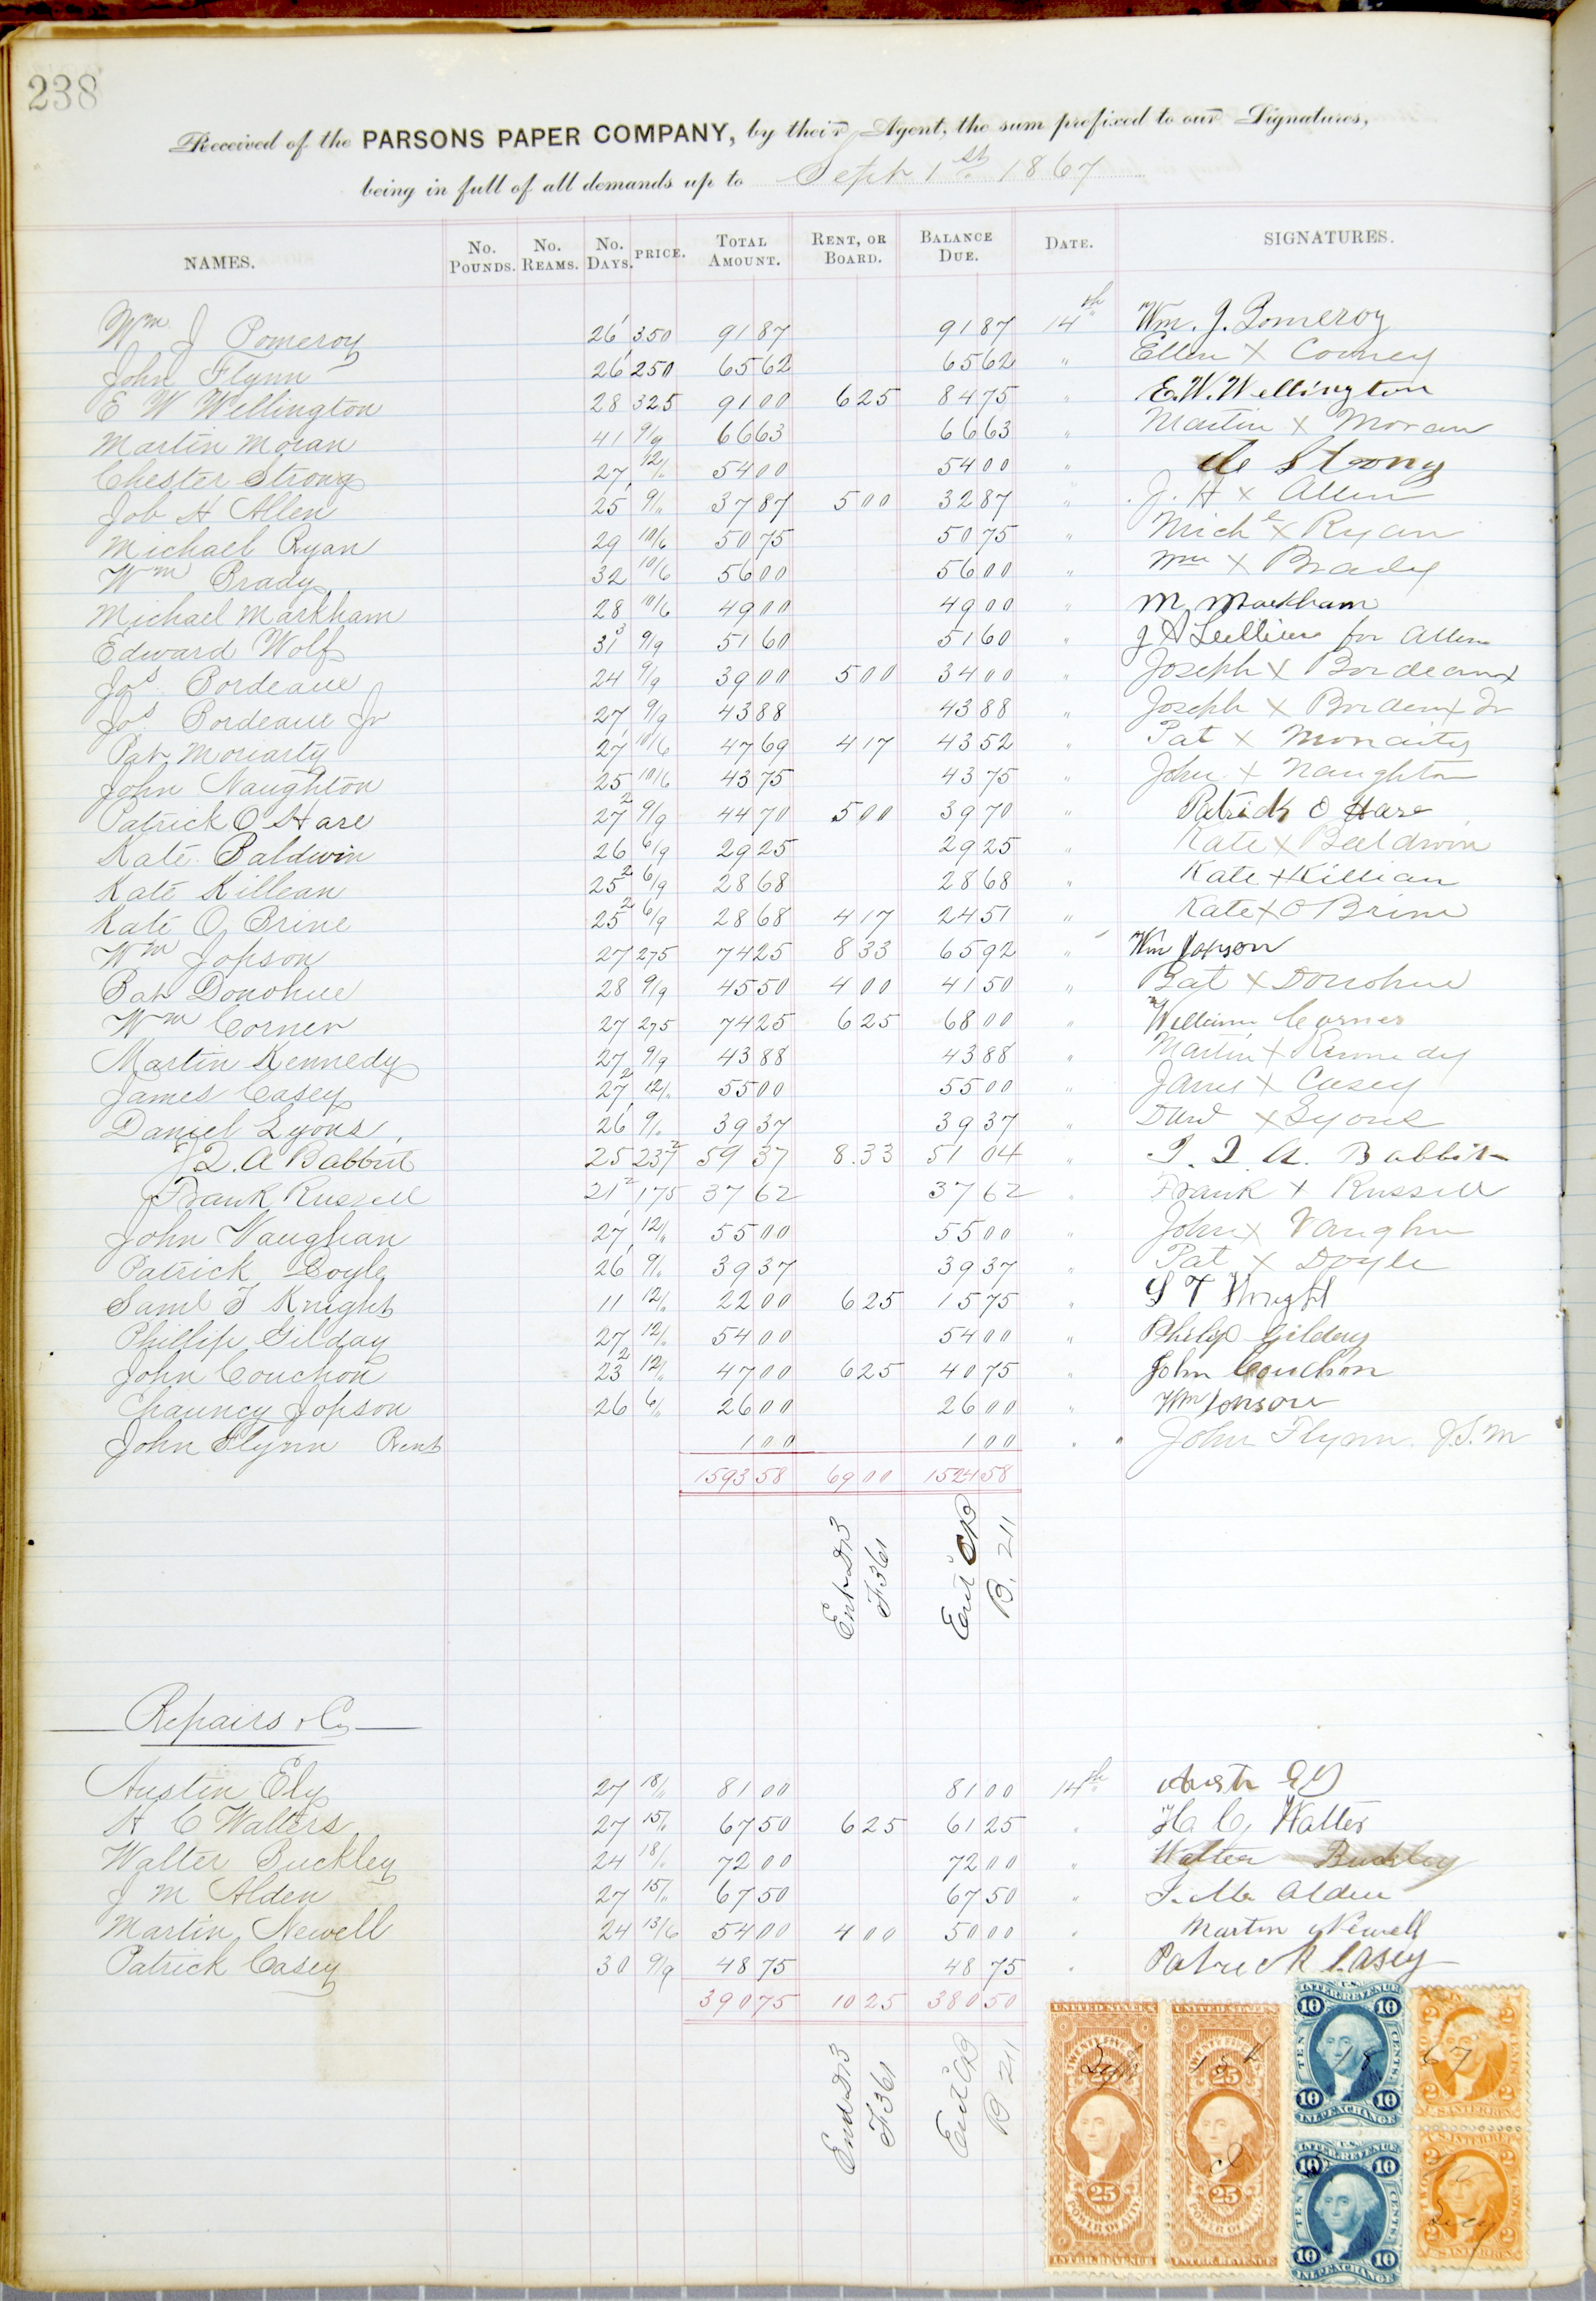 238
Received of the PARSONS PAPER COMPANY, by their Agent, the sum prefixed to our Signatures,
being in full of all demands up to Sept 1st 1867
NAMES. No. Pounds. No. Reams. No. Days. PRICE. Total Amount. Rent, or Board. Balance Due. Date. SIGNATURES.
Wm J Pomeroy 26 1 350 91 87 91 87 14th Wm. J. Pomeroy
John Flynn 26 1 250 65 62 65 62 " Ellen X Cooney
E W Wellington 28 325 91 00 6 25 84 75 " E. W. Wellington
Martin Moran 41 9/9 66 63 66 63 " Martin X Moran
Chester Strong 27 12/. 54 00 54 00 " Strong
Job H Allen 25 1 9/. 37 87 5 00 32 87 " J. H X Allen
Michael Ryan 29 10/6 50 75 50 75 " Michl X Ryan
Wm Brady 32 10/6 56 00 56 00 " Wm X Brady
Michael Markham 28 10/6 49 00 49 00 " M Markham
Edward Wolf 31 3 9/9 51 60 51 60 " for Allen
Jos. Bordeaue 24 9/9 39 00 5 00 34 00 " Joseph X Bordeaux
Jos. Bordeaue Jr 27 9/9 43 88 43 88 " Joseph X Bordeux Jr
Pat Moriarty 27 1 10/6 47 69 4 17 43 52 " Pat X Moriaity
John Naughton 25 10/6 43 75 43 75 " John X Naughton
Patrick O Hare 27 2 9/9 44 70 5 00 39 70 " Patrick O Hare
Kate Baldwin 26 6/9 29 25 29 25 " Kate X Baldwin
Kate Killean 25 2 6/9 28 68 28 68 " Kate X Killian
Kate O Brine 25 2 6/9 28 68 4 17 24 51 " Kate X O Brine
Wm Jopson 27 275 74 25 8 33 65 92 " Wm Jopson
Pat Donohue 28 9/9 45 50 4 00 41 50 " Pat X Donohue
Wm Corner 27 275 74 25 6 25 68 00 " William Corner
Martin Kennedy 27 9/9 43 88 43 88 " Martin X Kennedy
James Casey 27 2 12/. 55 00 55 00 " James X Casey
Daniel Lyons 26 1 9/. 39 37 39 37 " X Lyons
J. Q. A Babbit 25 237 2 59 37 8.33 51 04 " J. Q. A. Babbit
Frank Russell 21 2 175 37 62 37 62 " Frank X Russell
John Vaughan 27 12/. 55 00 55 00 " John X Vaughn
Patrick Doyle 26 1 9/. 39 37 39 37 " Pat X Doyle
Saml T Knight 11 12/. 22 00 6 25 15 75 " S T Knight
Phillip Gilday 27 12/. 54 00 54 00 " Philip Gilday
John Couchon 23 2 12/. 47 00 6 25 40 75 " John Couchon
Chauncy Jopson 26 6/. 26 00 26 00 " Wm Jopson
John Flynn Rent 1 00 1 00 " " John Flynn J.S.M
1593 58 69 00 1524 58
Ent Dr3 F361
Ent'd CB B. 211
Repairs & C
Austin Ely 27 18/. 81 00 81 00 14th Austn Ely
H C Walters 27 15/. 67 50 6 25 61 25 " H. C. Walter
Walter Buckley 24 18/. 72 00 72 00 " Walter Buckley
J M Alden 27 15/. 67 50 67 50 " J. M. Alden
Martin Newell 24 13/6 54 00 4 00 50 00 " Martin Newell
Patrick Casey 30 9/9 48 75 48 75 " Patrick Casey
390 75 10 25 380 50
Ent Dr3 F361
Ent'd CB B 211
UNITED STATES TWENTY FIVE CENTS 25 25 POWER OF ATT'Y INTER. REVENUE
UNITED STATES TWENTY FIVE CENTS 25 25 POWER OF ATT'Y INTER. REVENUE
U.S. INTER. REVENUE 10 10 TEN CENTS 10 10 INL'D EXCHANGE
U.S. INTER. REVENUE 10 10 TEN CENTS 10 10 INL'D EXCHANGE
2 2 U.S. INTER. REV.
U.S. INTER. REV. 2 2 U.S. INTER. REV.
Sept 18 67